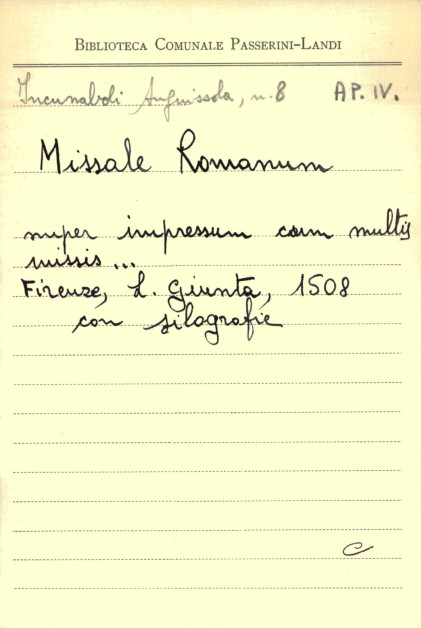 BIBLIOTECA COMUNALE PASSERINI-LANDI
Incunaboli Anguissola, n. 8 AP. IV.
Missale Romanum
nuper impressum cum multis
missis...
Firenze, L. Giunta, 1508
con silografie
C